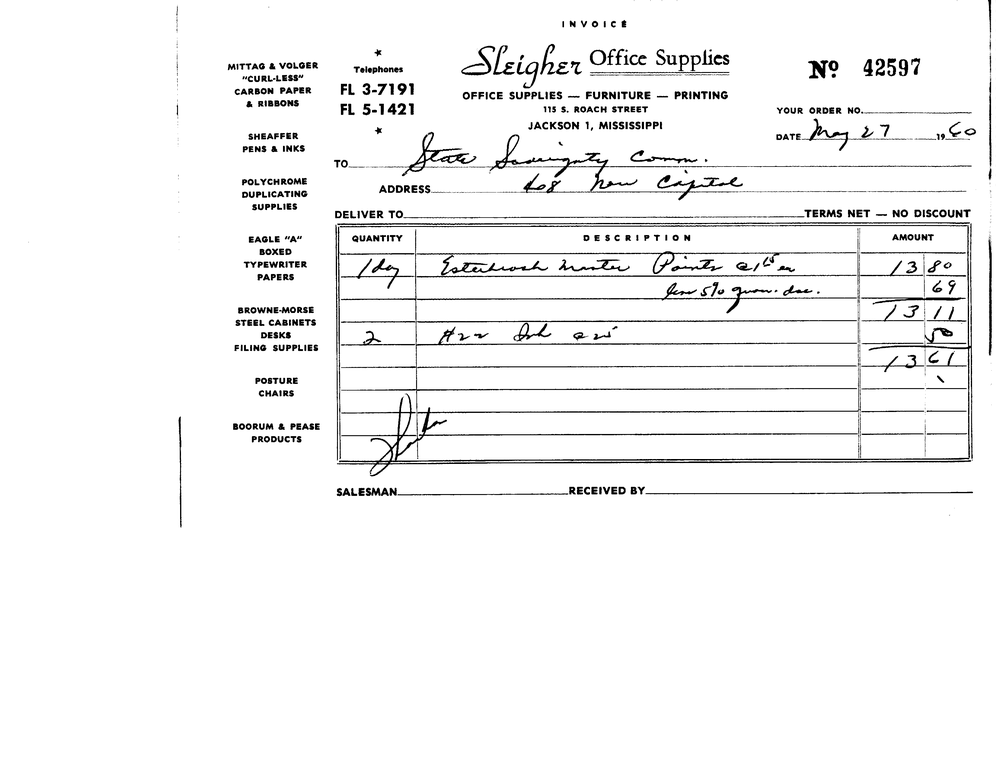 INVOICE
Sleigher Office Supplies
OFFICE SUPPLIES — FURNITURE — PRINTING
115 S. ROACH STREET
JACKSON 1, MISSISSIPPI
★
Telephones
FL 3-7191
FL 5-1421
★
Nº 42597
YOUR ORDER NO.
DATE May 27 1960
MITTAG & VOLGER
"CURL-LESS"
CARBON PAPER
& RIBBONS
SHEAFFER
PENS & INKS
POLYCHROME
DUPLICATING
SUPPLIES
EAGLE "A"
BOXED
TYPEWRITER
PAPERS
BROWNE-MORSE
STEEL CABINETS
DESKS
FILING SUPPLIES
POSTURE
CHAIRS
BOORUM & PEASE
PRODUCTS
TO State Soverignty Comm.
ADDRESS 408 New Capitol
DELIVER TO TERMS NET — NO DISCOUNT
QUANTITY DESCRIPTION AMOUNT
1 doz Esterbrook Master Points @ 1 15 ea 13 80
less 5% quan. dsc. 69
13 11
2 #22 Ink @ 25 50
13 61
SALESMAN RECEIVED BY